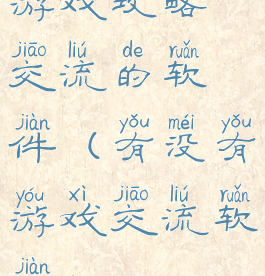 游戏攻略
jiāo liú de ruǎn
交流的软
jiàn yǒu méi yǒu
件（有没有
yóu xì jiāo liú ruǎn
游戏交流软
jiàn